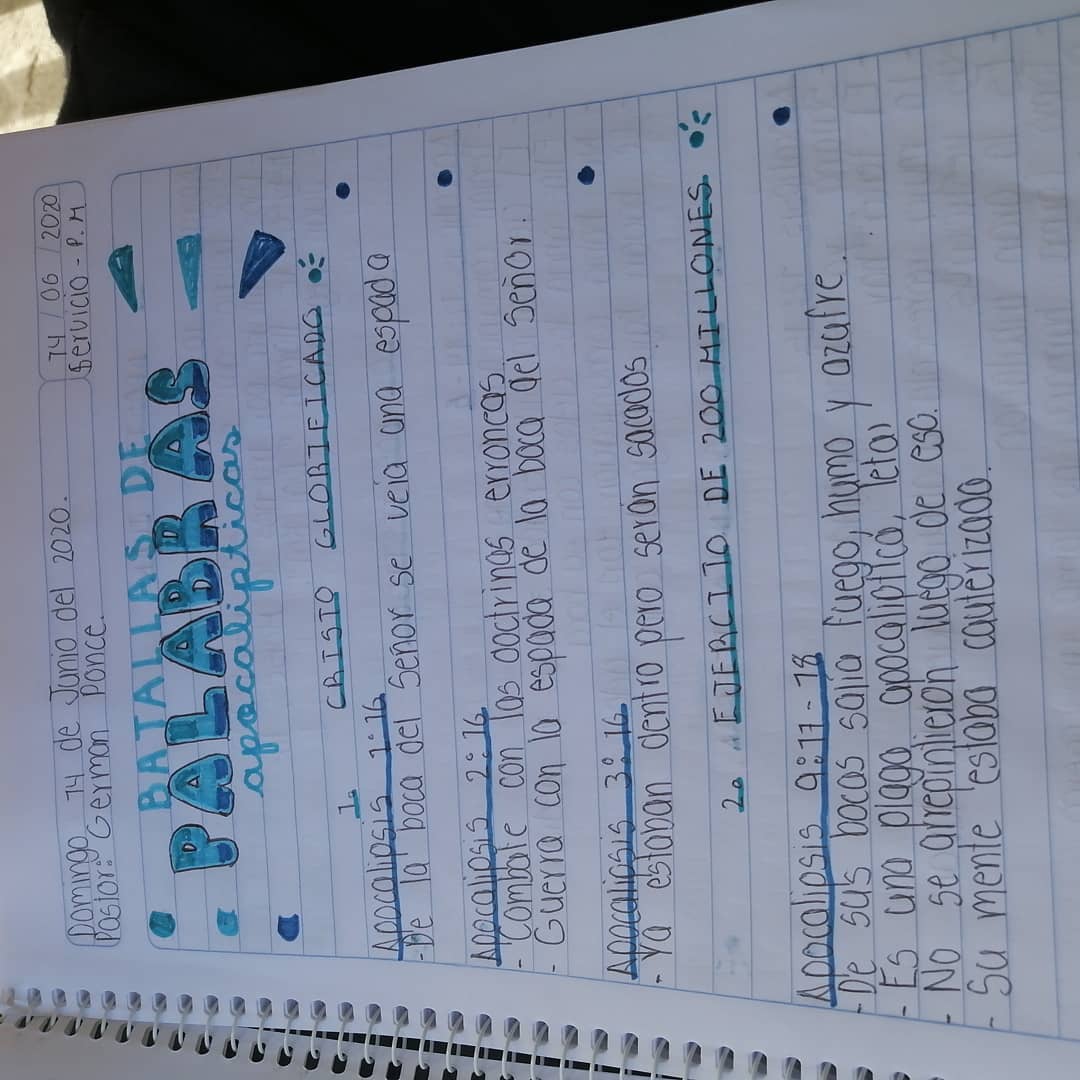 Domingo 14 de Junio del 2020.
Pastor: German Ponce.
14 / 06 / 2020
Servicio - P.M
BATALLAS DE
PALABRAS
apocalipticas
1. CRISTO GLORIFICADO
Apocalipsis 1:16
- De la boca del Señor se veia una espada
Apocalipsis 2:16
- Combate con las doctrinas erroneas
- Guerra con la espada de la boca del Señor.
Apocalipsis 3:16
- Ya estaban dentro pero serán sacados
2. EJERCITO DE 200 MILLONES
Apocalipsis 9:17-18
- De sus bocas salia fuego, humo y azufre.
- Es una plaga apocaliptica, letal
- No se arrepintieron luego de eso.
- Su mente estaba cauterizada.